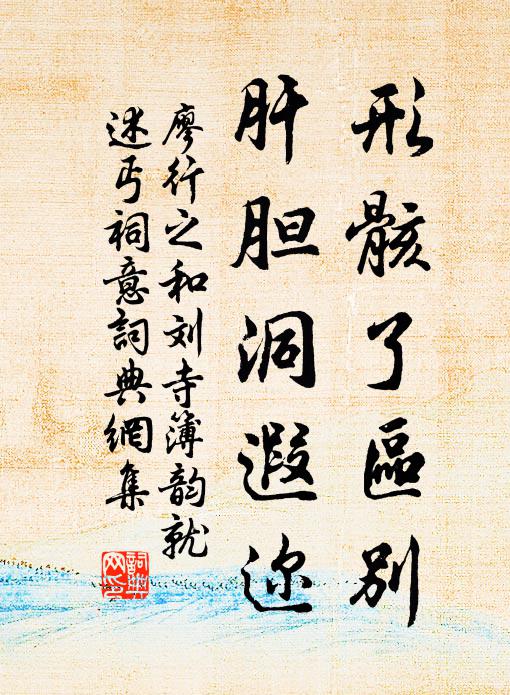 形骸了區别
肝胆洞遐迩
廖行之和刘寺簿韵就
述丐祠意詞典網集